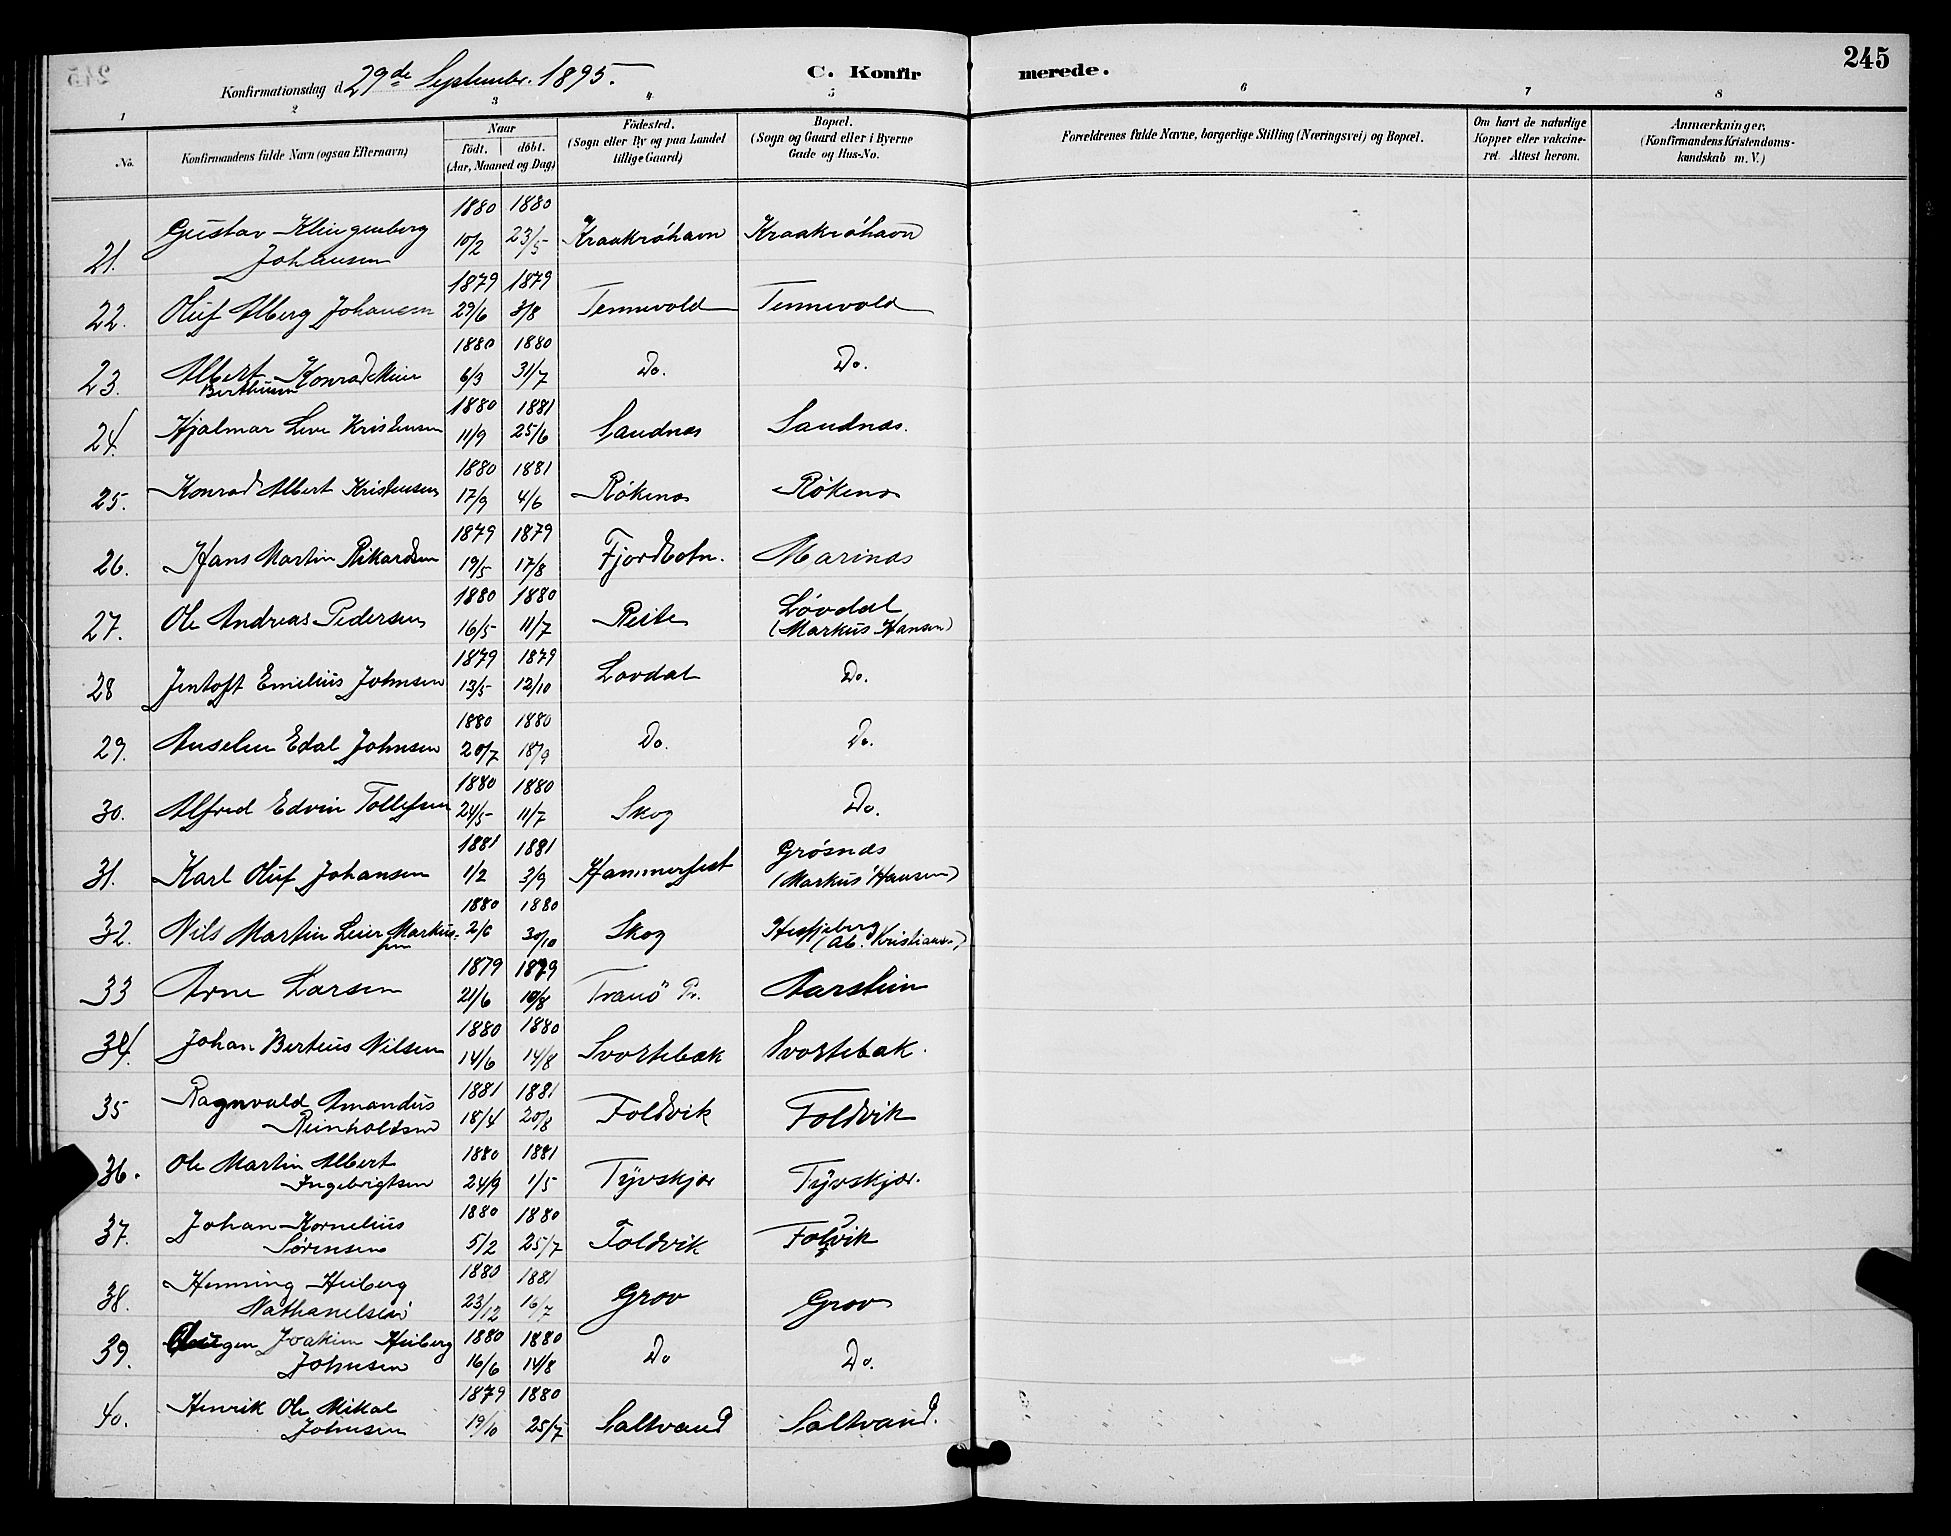 245
Konfirmationsdag d. 29de September 1895.
C. Konfirmerede.
1 2 3 4 5 6 7 8
No.
Konfirmandens fulde Navn (ogsaa Efternavn)
Naar
födt. döbt.
(Aar, Maaned og Dag)
Födested.
(Sogn eller By og paa Landet
tillige Gaard)
Bopæl.
(Sogn og Gaard eller i Byerne
Gade og Hus-No.
Forældrenes fulde Navne, borgerlige Stilling (Næringsvei) og Bopæl.
Om havt de naturlige
Kopper eller vakcine-
ret. Attest herom.
Anmærkninger.
(Konfirmandens Kristendoms-
kundskab m. V.)
1880 1880
21. Gustav Klingenberg 10/2 23/5 Kraakröhavn Kraakröhavn
Johansen
1879 1879
22. Oluf Alberg Johansen 29/6 3/8 Tennevold Tennevold
1880 1880
23. Albert Konrad Meier 6/3 31/7 Do. Do.
Berthusen
1880 1881
24. Hjalmar Leve Kristensen 11/9 25/6 Sandnæs Sandnæs.
1880 1881
25. Konrad Albert Kristensen 17/9 4/6 Rökenæs Rökenæs
1879 1879
26. Hans Martin Rikardsen 19/5 17/8 Fjordbotn. Marinæs
1880 1880
27. Ole Andreas Pedersen 16/5 11/7 Reite Lövdal
(Markus Hansen)
1879 1879
28 Jentoft Emelius Johnsen 13/5 12/10 Lovdal Do.
1880 1880
29. Anselm Edal Johnsen 20/7 18/9 Do. Do.
1880 1880
30. Alfred Edvin Tollefsen 24/5 11/7 Skog Do.
1881 1881
31. Karl Oluf Johansen 1/2 3/9 Hammerfest Grösnæs
(Markus Hansen)
1880 1880
32. Nils Martin Leier Markus- 2/6 30/10 Skog Hesfjeberg
sen (Ab. Kristiansen)
1879 1879
33 Arne Larsen 21/6 10/8 Tranö Pr. Aarstein
1880 1880
34. Johan Berteus Nilsen 14/6 14/8 Svortebæk Svortebæk.
1881 1881
35 Ragnvald Amandus 18/4 20/8 Foldvik Foldvik
Reinholdsen
1880 1881
36. Ole Martin Albert 24/9 1/5 Tyvskjær Tyvskjær.
Ingebrigtsen
1880 1880
37. Johan Kornelius 5/2 25/7 Foldvik Foldvik
Sörensen
1880 1881
38. Henning Heiberg 23/12 16/7 Grov Grov
Nathanelsen
1880 1880
39. Joakim Heiberg 16/6 14/8 Do Do.
Johnsen
1879 1880
40. Henrik Ole Mikal 19/10 25/7 Saltvand Saltvand.
Johnsen